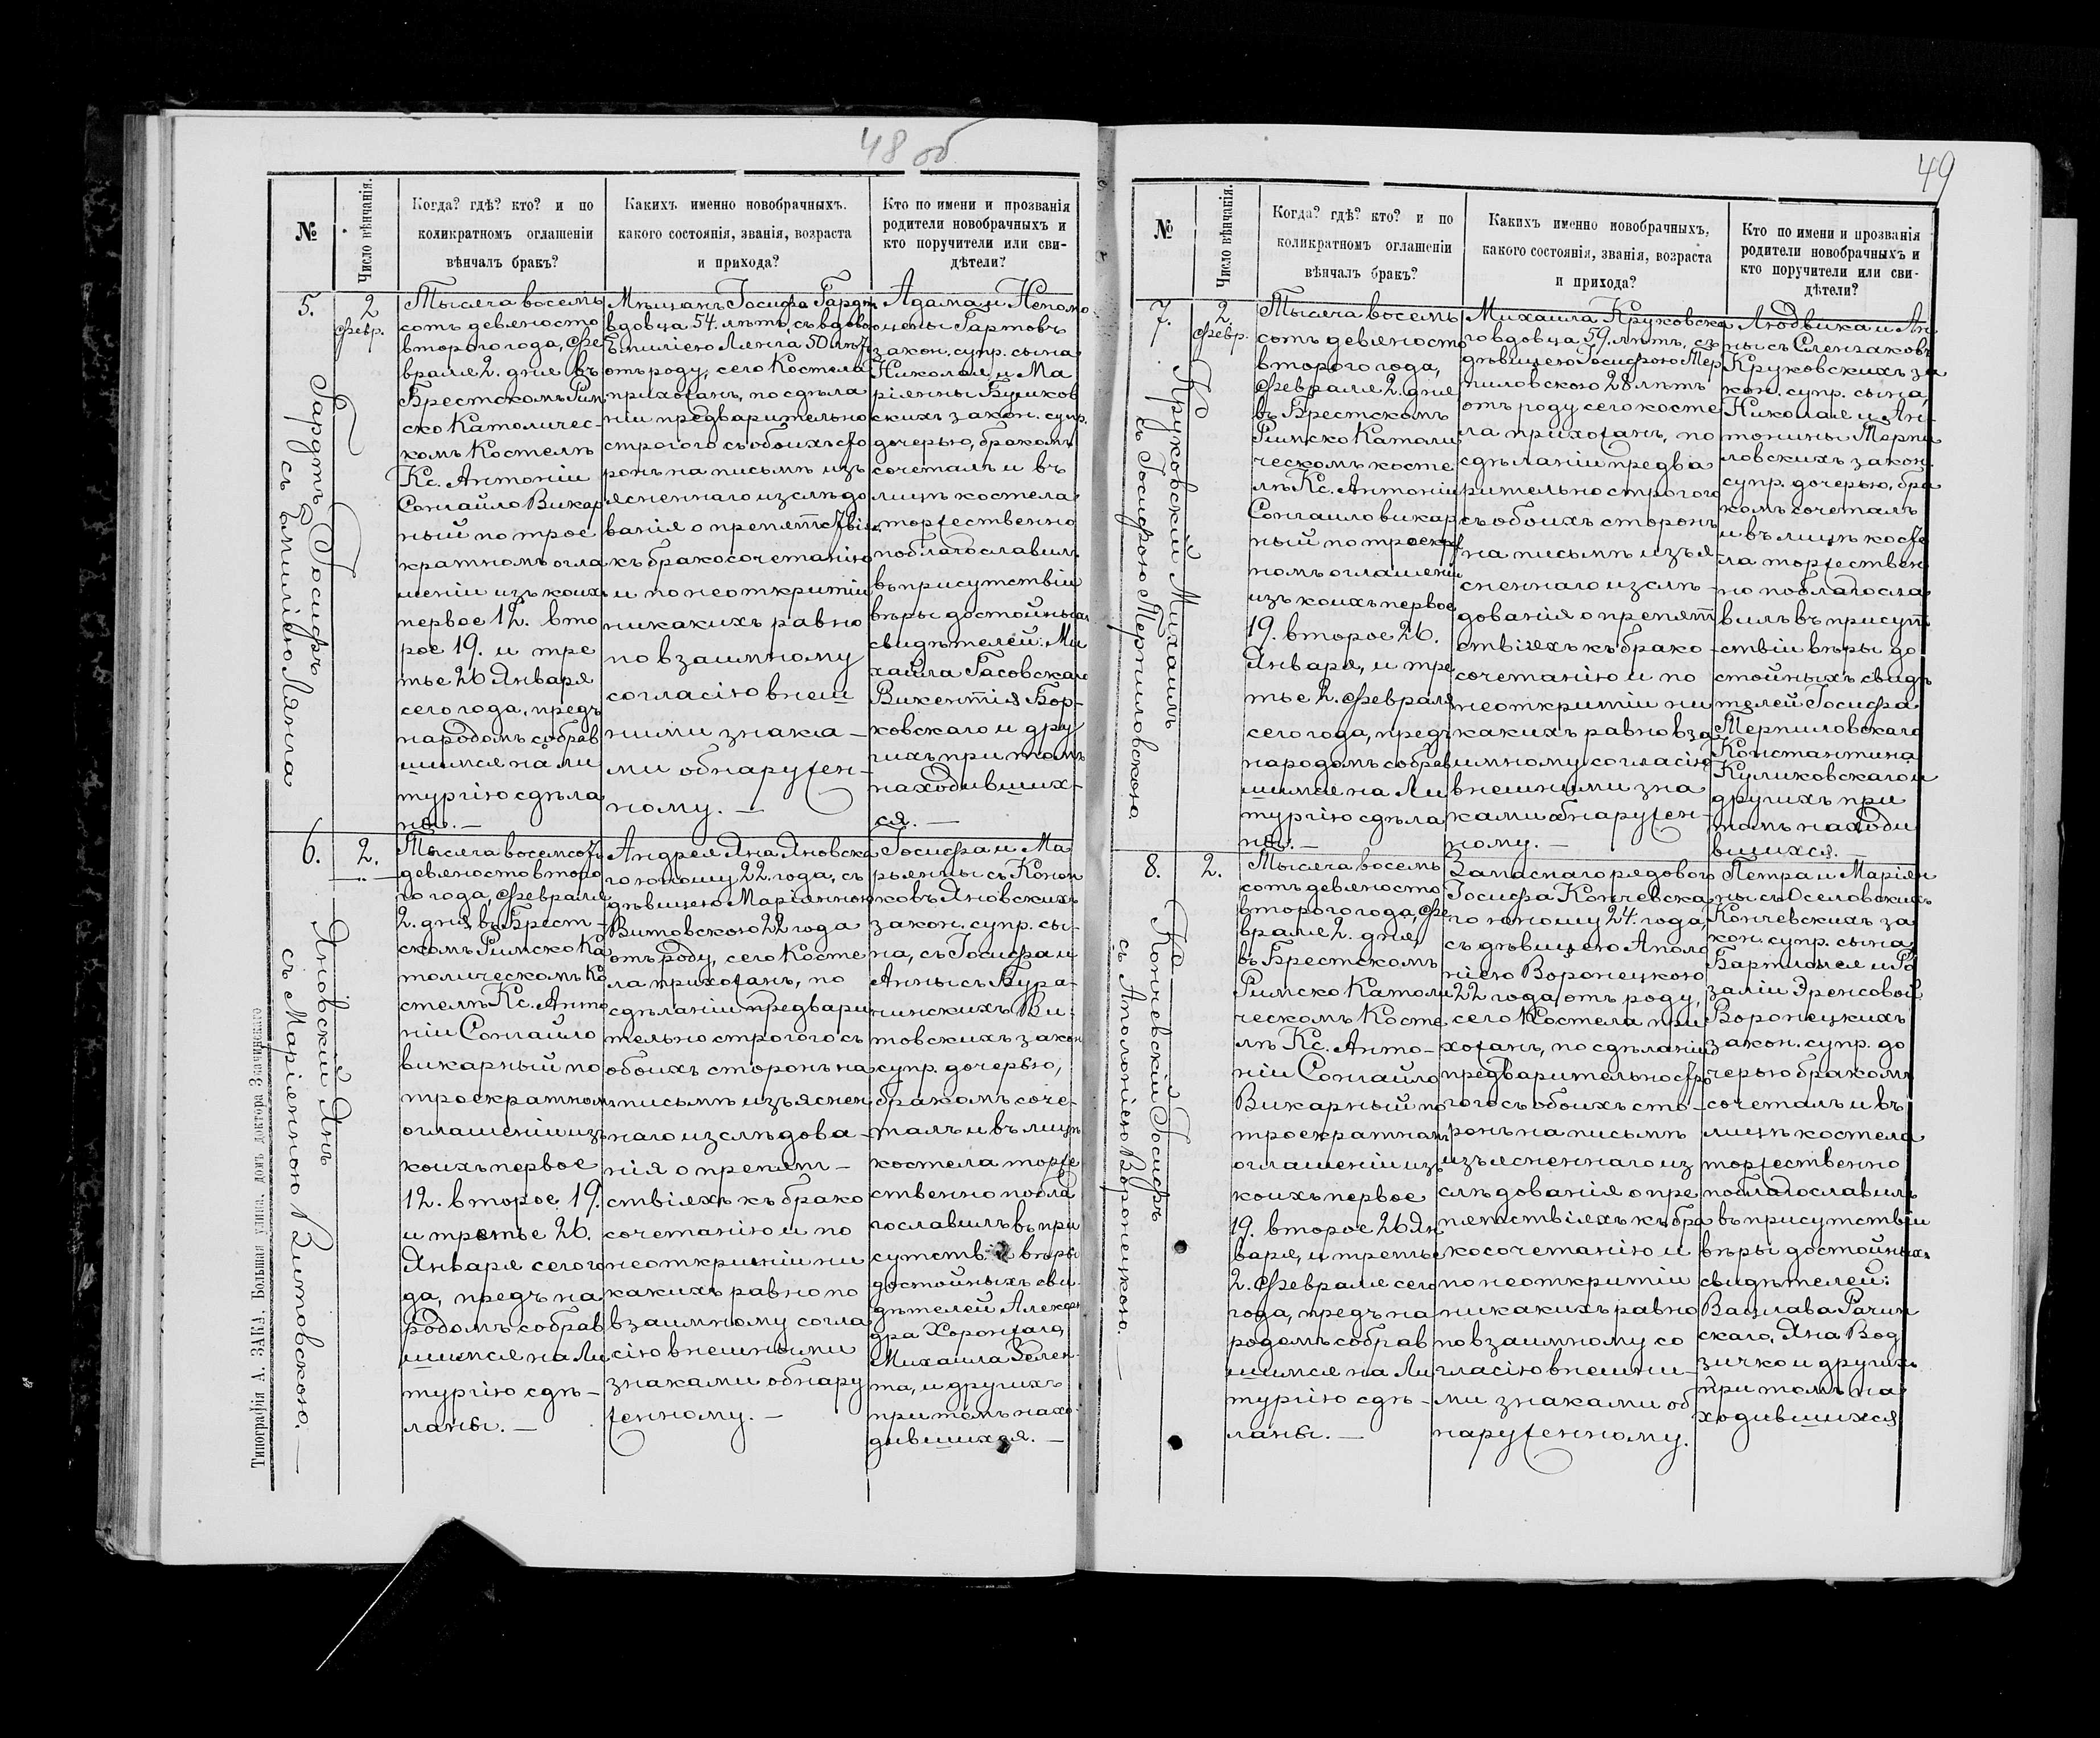 48 об
№
Число вѣнчанія.
Когда? гдѣ? кто? и по
коликратномъ оглашеніи
вѣнчалъ бракъ?
Какихъ именно новобрачныхъ.
какого состоянія, званія, возраста
и прихода?
Кто по имени и прозванія
родители новобрачныхъ и
кто поручители или сви-
дѣтели?
5.
2
Февр.
Гардтъ Іосифъ
съ Емиліею Лянга
Тысяча восемь
сотъ девяносто
второго года, Фе
враля 2. дня въ
Брестскомъ Рим
ско Католичес-
комъ Костелѣ
Кс. Антоній
Сонгайло Викар
ный по трое
кратномъ огла
шеніи изъ коихъ
первое 12. вто
рое 19. и тре
тье 26 Января
сего года, предъ
народомъ собрав
шимся на ли
тургію сдѣла
ны. —
Мѣщанъ Іосифа Гардт
вдовца 54. лѣтъ, съ вдово
Емиліею Лянга 50 лѣтъ
отъ роду, сего Костела
прихожанъ, по сдѣла
ніи предварительно
строгого съ обоихъ сто
ронъ на письмѣ изъ
ясненнаго изслѣдо
ванія о препятствіях
къ бракосочетанію
и по неоткрытіи
никакихъ равно
по взаимному
согласію внеш
ними знака —
ми обнаружен-
ному. —
Адама и Непомо
цены Гартовъ
закон. супр. сына
Николая, и Ма
ріянны Буяков
скихъ закон. супр.
дочерью, бракомъ
сочеталъ и въ
лицѣ костела
торжественно
поблагославилъ
въ присутствіи
вѣры достойныхъ
свидѣтелей: Ми
хаила Гасовскаго
Викентія Бор-
ковскаго и дру
гихъ при томъ
находивших-
ся. —
6.
2.
Яновскій Янъ
съ Маріенною Витовскою. —
Тысяча восемсотъ
девяносто второ
го года, Февраля
2. дня, въ Брест-
скомъ Римско Ка
толическомъ Ко
стелѣ Кс. Анто
ній Сонгайло
викарный по
троекратномъ
оглашеніи изъ
коихъ первое
12. второе 19.
и третье 26.
Января сего го
да, предъ на
родомъ собрав
шимся на Ли
тургію сдѣ —
ланы. —
Андрея Яна Яновска
го юношу 22 года, съ
дѣвицею Маріянною
Витовскою 22 года
отъ роду, сего Косте
ла прихожанъ, по
сдѣланіи предвари
тельно строгого съ
обоихъ сторонъ на
письмѣ изъяснен
наго изслѣдова —
нія о препят —
ствіяхъ къ брако
сочетанію и по
неоткрытіи ни
какихъ равно по
взаимному согла
сію внешними
знаками обнару
женному. —
Іосифа и Ма
рьянны съ Конон
ковъ Яновскихъ
закон. супр. сы-
на, съ Іосифа и
Анны съ Бура-
чинскихъ Ви-
товскихъ закон
супр. дочерью,
бракомъ соче-
талъ и въ лицѣ
костела торже
ственно побла
гославилъ въ при
сутствіи вѣры
достойныхъ сви
дѣтелей Алексан
дра Хоронжаго,
Михаила Зелен
та, и другихъ
при томъ нахо
дившихся. —
Типографія А. ЗАКА. Большая улица. домъ доктора Значинскаго
49
№
Число вѣнчанія.
Когда? гдѣ? кто? и по
коликратномъ оглашеніи
вѣнчалъ бракъ?
Какихъ именно новобрачныхъ,
какого состоянія, званія, возраста
и прихода?
Кто по имени и прозванія
родители новобрачныхъ и
кто поручители или сви-
дѣтели?
7.
2
Февр.
Круковскій Михаилъ
съ Іосифою Терпиловскою
Тысяча восемь
сотъ девяносто
второго года,
Февраля 2. дня
въ Брестскомъ
Римско Катали
ческомъ косте
лѣ Кс. Антоній
Сонгаило викар
ный по троекрат
номъ оглашеніи
изъ коихъ первое
19. второе 26.
Января, и тре
тье 2. Февраля
сего года, предъ
народомъ собрав
шимся на Ли
тургію сдѣла
ны. —
Михаила Круковска
го вдовца 59. лѣтъ, съ
дѣвицею Іосифою Тер
пиловскою 28 лѣтъ
отъ роду сего косте
ла прихожанъ, по
сдѣланіи предва
рительно строгого
съ обоихъ сторонъ
на письмѣ изъя-
сненнаго изслѣ -
дованія о препят
ствіяхъ къ брако -
сочетанію и по
неоткрытіи ни
какихъ равно вза
имному согласію
внешними зна
ками обнаружен-
ному. —
Людвика и Ан-
ны съ Сленzаковъ
Круковскихъ за
кон. супр. сына,
Николая и Ан-
тонины Терпи
ловскихъ закон.
супр. дочерью, бра
комъ сочеталъ
и въ лицѣ косте
ла торжествен
но поблагосла
вилъ въ присут
ствіи вѣры до
стойныхъ свидѣ
телей Іосифа
Терпиловскаго
Константина
Куликовскаго и
другихъ при
томъ находи
вшихся. —
8.
2.
Кончевскій Іосифъ
съ Аполоніею Воронецкою. —
Тысяча восемь
сотъ девяносто
второго года, Фе
враля 2. дня,
въ Брестскомъ
Римско Католи
ческомъ Косте
лѣ Кс. Анто —
ній Сонгайло
Викарный по
троекратномъ
оглашеніи изъ
коихъ первое
19. второе 26 Ян
варя, и третье
2. Февраля сего
года, предъ на
родомъ собрав
шимся на Ли
тургію сдѣ —
ланы. —
Запаснаго рядового
Іосифа Кончевска
го юношу 24. года,
съ дѣвицею Аполо
ніею Воронецкою
22 года, отъ роду,
сего Костела при
хожанъ, по сдѣланіи
предварительно стро
гого съ обоихъ сто —
ронъ на письмѣ
изъясненнаго из
слѣдованія о пре
пятствіяхъ къ бра
косочетанію и
по неоткрытіи
никакихъ равно
по взаимному со
гласію внешни —
ми знаками об
наруженному.
Петра и Маріян
ны съ Оселовскихъ
Кончевскихъ за
кон. супр. сына,
Бартломея и Ро
заліи Эренсовой
Воронецкихъ
закон. супр. до
черью бракомъ
сочеталъ и въ
лицѣ костела
торжественно
поблагославилъ
въ присутствіи
вѣры достойныхъ
свидѣтелей:
Вацлава Рачин
скаго, Яна Вод
зичко и другихъ
при томъ на
ходившихся